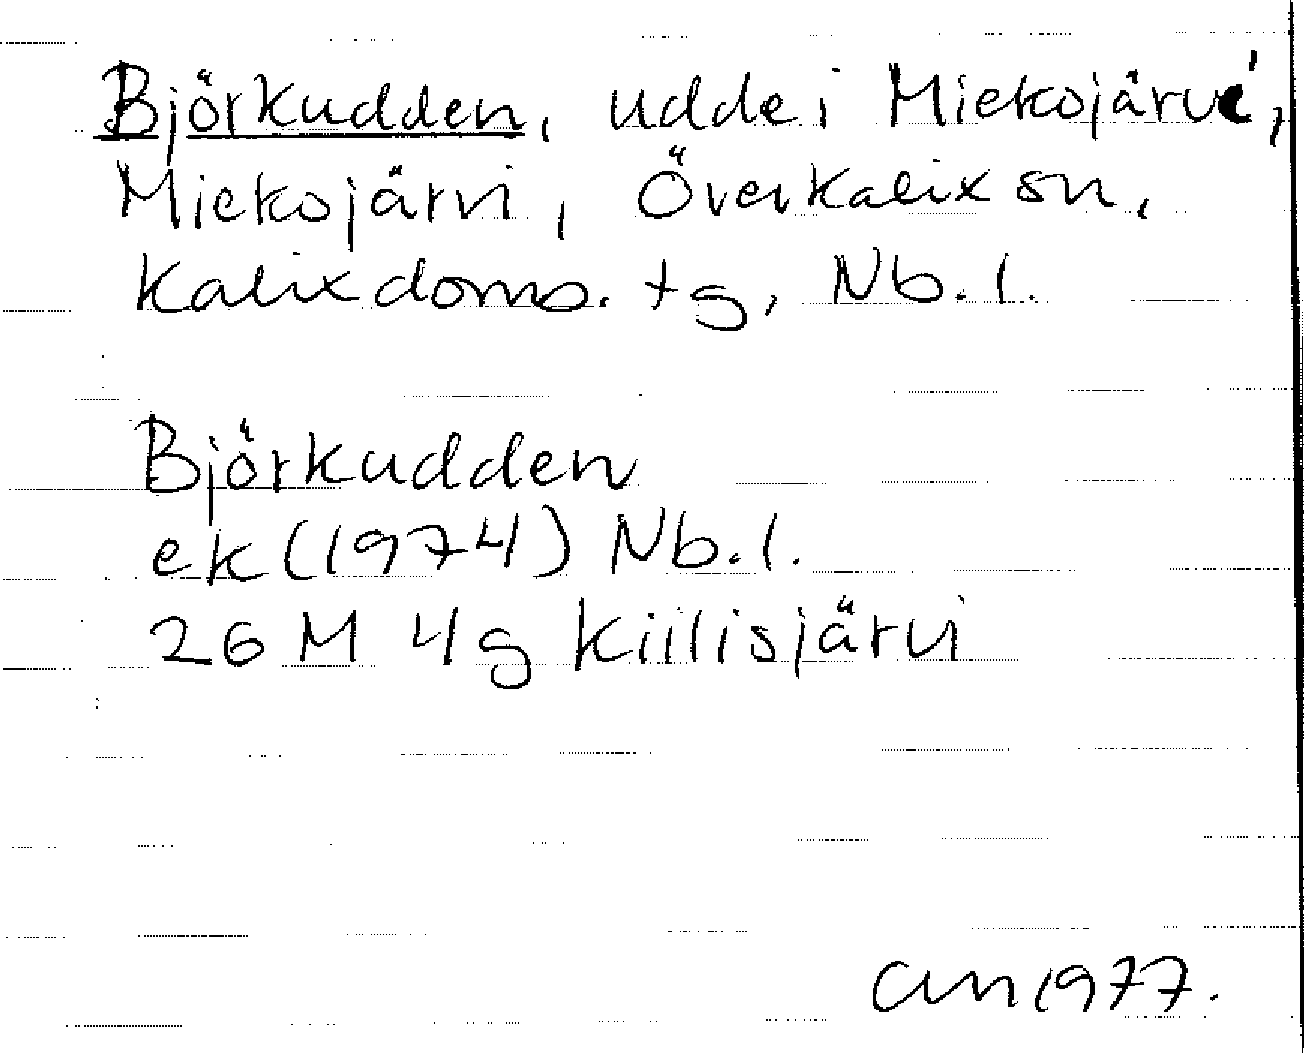 Björkudden, udde i Miekojärvi,
Miekojärvi, Överkalix sn,
Kalix doms. tg, Nb. l.
Björkudden
ek (1974) Nb. l.
26 M 4g Kiilisjärvi
1977.